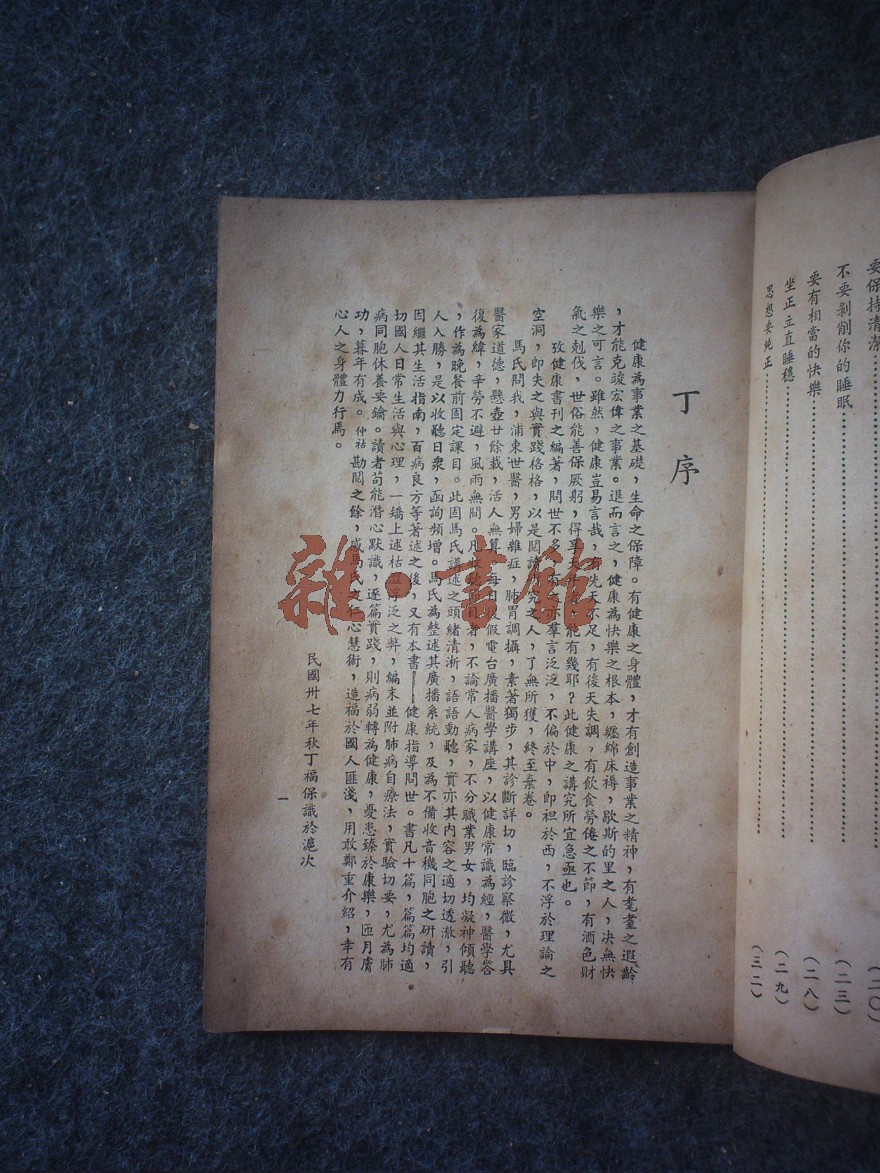 要保持清潔
(二〇)
不要剝削你的睡眠
(二三)
要有相當的快樂
(二八)
坐正立直睡穩
(二九)
思想要純正
(三二)
丁序
健康為事業之基礎,生命之保障。有健康之身體,才有創造事業之精神,有耄耋之遐齡
,才能克竣宏偉之事業。退而言之,健康為快樂之根本,纏綿床褥,歇斯的里之人,決無快
樂之可言。雖然,健康豈易言哉,有先天不足,有後天失調,有飲食勞倦之不節,有酒色財
氣之剋伐,世俗能善保厥躬,得享天年者能有幾耶?此健康之講究所宜急亟也。
攷健康書刊之編著,問世不多,有之亦羣言泛泛,不偏於中,即袒於西,不浮於理論之
空洞,即失之與實踐格格,以是閱讀研究之人,了無所獲,終至棄卷。
馬氏問我,浦東世醫,男婦雜症,肺胃調攝,素著獨步,其診斷詳切,臨診察微,尤具
醫家道德,懸壺廿餘載,活人無算。每日假電台廣播醫學講座,以健康常識為經,醫學答
後為緯,辛勞不避,風雨無間。凡者,不論常人病家,不分職業男女,均凝神傾聽
,作為晚餐前固定課目。此固馬氏講述之頭緒清淅,語語動聽,實亦其內容之適切透澈,引
人入勝,是以收聽日衆,函詢頻增。馬氏為整述其廣播系統,及為不備收音機同胞之研讀,
因繼其生活指南,百病良方等著述之後,又有本書——健康指導問世。書凡十篇,篇篇均適
切國人日常生活與心理,一矯上述枯澀浮泛之弊,編末並附肺病自療法,實驗切要,尤為肺
病同胞休養要鑰。讀者苟能潛心默識,逐篇實踐,則病弱轉為健康,憂患臻於康樂,匝月膚
功,暮年有成。仲祜勘閱之餘,感馬氏之仁心慧術,造福於國人匪淺,用敢鄭重介紹,幸有
心人之身體力行焉。
民國卅七年秋丁福保識於滬次
一
雜·書館